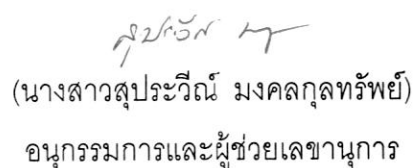 (นางสาวสุประวีณ์ มงคลกุลทรัพย์)
อนุกรรมการและผู้ช่วยเลขานุการ